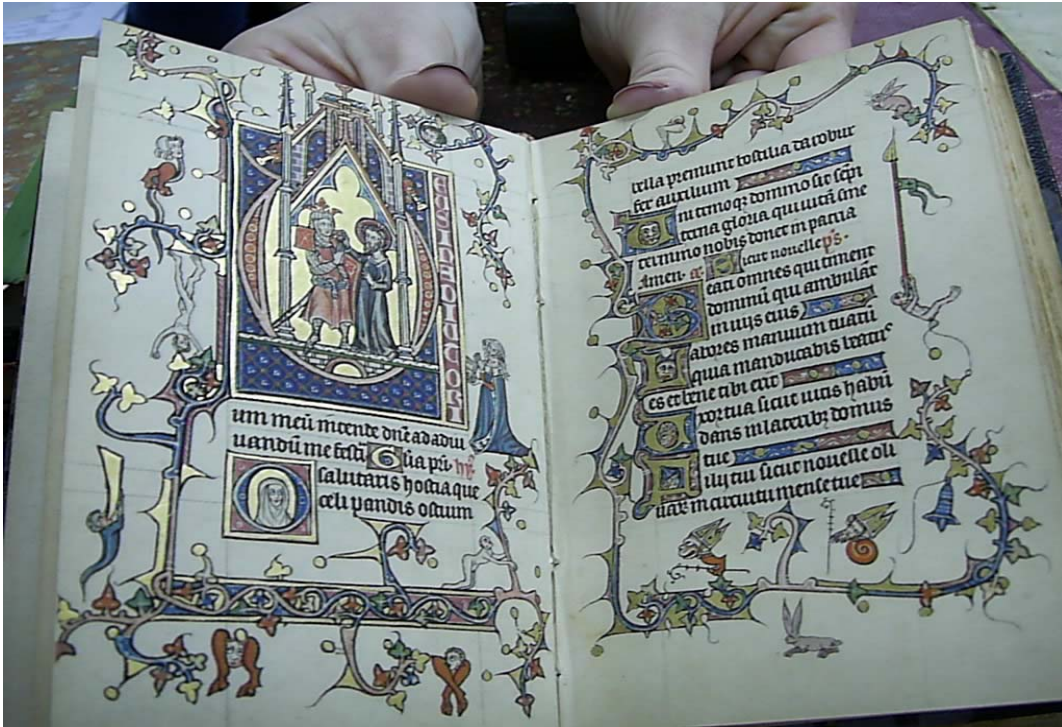 um meū intende dn̄e ad adiu
uandū me festī Glia pr̄i. hy̅
O salutaris hostia que
celi pandis ostium
bella premunt hostilia da robur
fer auxilium
Uni trino qꝫ domino sit sēpi
terna gloria qui uitā sine
termino nobis donet in patria
Amen. Sicut nouelle ps̄.
Beati omnes qui timent
dominū qui ambulāt
in uijs eius
Labores manuum tuarū
quia manducabis beatꝰ
es et bene tibi erit
Uxor tua sicut uitis habū
dans in lateribꝫ domus
tue
Filij tui sicut nouelle oli
uarꝫ in circuitu mense tue